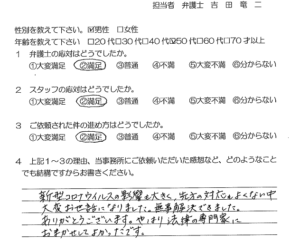 担当者 弁護士 吉 田 竜 二
性別を教えて下さい。☑男性 □女性
年齢を教えて下さい □20代□30代□40代☑50代□60代□70才以上
1 弁護士の応対はどうでしたか。
①大変満足 ②満足 ③普通 ④不満 ⑤大変不満 ⑥分からない
2 スタッフの応対はどうでしたか。
①大変満足 ②満足 ③普通 ④不満 ⑤大変不満 ⑥分からない
3 ご依頼された件の進め方はどうでしたか。
①大変満足 ②満足 ③普通 ④不満 ⑤大変不満 ⑥分からない
4 上記1~3の理由、当事務所にご依頼いただいた感想など、どのようなこと
でも結構ですからお書きください。
新型コロナウイルスの影響も大きく、先方の対応もよくない中
大変お世話になりました。無事解決できました。
ありがとうございます。やはり法律の専門家に
おまかせしてよかったです。